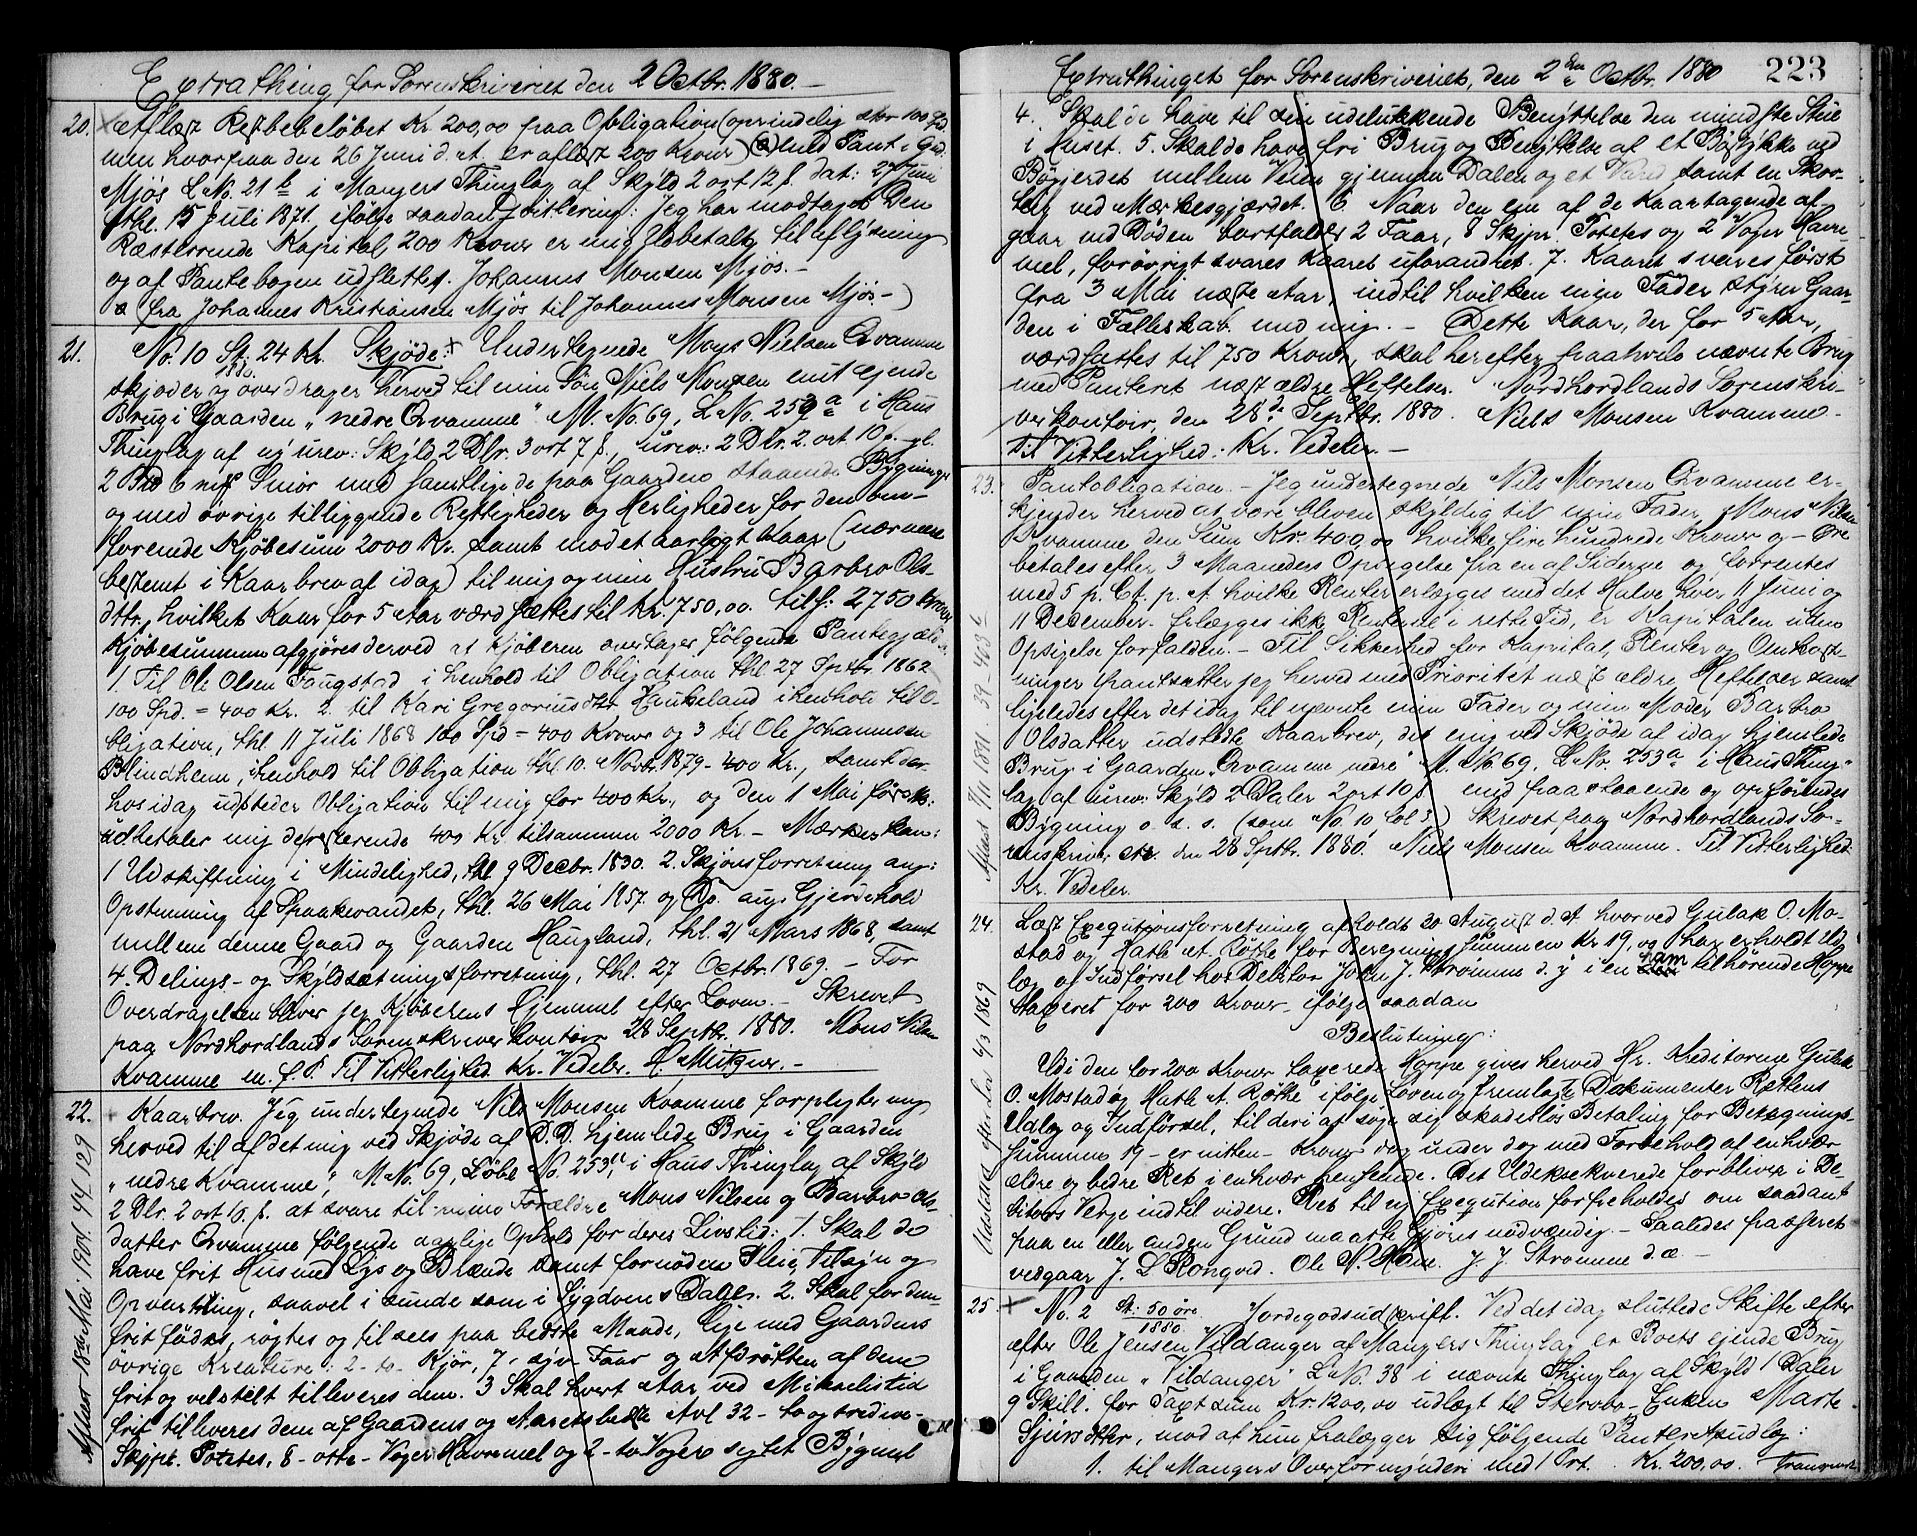 Extrathing for Sorenskriveriet den 2 Octbr. 1880. —
20. × Aflæst Restbeløbet Kr 200,00 paa Obligation (oprindelig stor 100 Spd.
men hvorpaa den 26 Juni d. A. er aflæst 200 Kroner) (a) med Pant i Grd.
Mjøs L No. 21 b i Mangers Thinglag af Skyld 2 ort 12 ß. dat: 27 Juni
thl. 15 Juli 1871, ifølge saadan Qvittering: Jeg har modtaget Den
Ræsterende Kapital 200 Kroner er mig betalt til aflysning
og af Pantebogen udslettes. Johannes Monsen Mjøs. —
a (fra Johannes Kristiansen Mjøs til Johannes Monsen Mjøs. —)
21. No. 10 St: 24 Kr. 1880. Skjøde: + Undertegnede Mons Nielsen Qvamme
skjøder og overdrager herved til min Søn Niels Monsen mit ejende
Brug i Gaarden „nedre Qvamme" M. No. 69, L No. 253 a i Haus
Thinglag af ny urev: Skyld 2 Dlr. 3 ort 7 ß., urev: 2 Dlr. 2 ort 10 ß. gl.
2 Bd 6 mß Smør med samtlige de paa Gaarden staaende Bygninger
og med øvrige tilliggende Rettigheder og Herligheder for den om-
forenede Kjøbesum 2000 Kr. samt mod et aarligt Kaar (nærmere
bestemt i Kaarbrev af idag) til mig og min Hustru Barbro Ols-
dttr., hvilket Kaar for 5 Aar værdsættes til Kr. 750,00. tils: 2750 Kroner
Kjøbesummen afgjøres derved at Kjøberen overtager følgende Pantegjæld:
1. Til Ole Olsen Fougstad i henhold til Obligation thl 27 Sptbr. 1862
100 Spd. = 400 Kr. 2. til Kari Gregoriusdttr Haukeland i henhold til O-
bligation, thl. 11 Juli 1868 100 Spd = 400 Kroner og 3 til Ole Johannesen
Blindheim, i henhold til Obligation thl 10. Novbr. 1879 - 400 Kr., samt der-
hos idag udsteder Obligation til mig for 400 Kr., og den 1 Mai førstk.
udbetaler mig de resterende 400 Kr. tilsammen 2000 Kr. — Mærkes kan:
1 Udskiftning i Mindelighed, thl. 9 Decbr. 1830. 2. Skjønsforretning ang:
Opstemning af Spaakevandet, thl. 26 Mai 1857. og Do. ang. Gjerdehold
mellem denne Gaard og Gaarden Haugland, thl. 21 Mars 1868, samt
4. Delings- og Skyldsætningsforretning, thl. 27 Octbr. 1869. — For
Overdragelsen bliver jeg Kjøberens Hjemmel efter Loven. — Skrevet
paa Nordhordlands Sorenskriverkontoir 28 Septbr. 1880. Mons Nilsen
Kvamme m. f. P. Til Vitterlighed Kr. Vedeler. H. Mitzner. —
22. + Kaarbrev. Jeg undertegnede Nils Monsen Kvamme forpligter mig
herved til af det mig ved Skjøde af D. D. hjemlede Brug i Gaarden
„nedre Kvamme", M No. 69, Løbe No. 253 a i Haus Thinglag af Skyld
2 Dlr. 2 ort 10. ß. at svare til mine Forældre Mons Nilsen og Barbro Ols-
datter Qvamme følgende aarlige Ophold for deres Livstid: 1. Skal de
have frit Hus med Lys og Brænde samt fornøden Pleie, Tilsyn og
Opvartning, saavel i sunde som i Sygdoms Dage. 2. Skal for dem
frit fødes, røgtes og tilsees paa bedste Maade, lige med Gaardens
øvrige Kreature: 2 - to - Kjør, 7 - syv - Faar og Afdrøften af dem
frit og velstelt tilleveres dem. 3 Skal hvert Aar ved Mikaelistid
frit tilleveres dem af Gaardens og Aarets bedste Avl 32 - to og tredive -
Skjpr. Potetes, 8 - otte - Voger Havremel og 2 - to Voger sigtet Bygmel
Aflæst 18de Mai 1901. 44. 129
Extrathinget for Sorenskriveriet, den 2den Octbr. 1880 223
4. Skal de have til sin udelukkende Benyttelse den mindste Stue
i Huset. 5. Skal de have fri Brug og Benyttelse af et Bøstykke ved
Bøgjerdet mellem Veien gjennem Dalen og et Vared, samt en Skor-
teig ved Mærkesgjærdet. 6. Naar den ene af de Kaartagende af-
gaar ved Døden bortfalder 2 Faar, 8 Skjpr. Potetes og 2 Voger Havre-
mel, forøvrigt svares Kaaret uforandret. 7. Kaaret svares først
fra 3 Mai næste Aar, indtil hvilken min Fader styrer Gaar-
den i Fælleskab med mig. — Dette Kaar, der for 5 Aar,
værdsættes til 750 Kroner, skal herefter paahvile nævnte Brug
med Panteret næst ældre Heftelser. Nordhordlands Sorenskri-
verkontoir, den 28de Septbr. 1880. Niels Monsen Kvamme.
Til Vitterlighed: Kr. Vedeler. —
23. Pantobligation. — Jeg undertegnede Nils Monsen Qvamme er-
kjender herved at være bleven skyldig til min Fader, Mons Nilsen
Kvamme den Sum Kr. 400,00 hvilke fire hundrede Kroner og — Øre
betales efter 3 Maaneders Opsigelse fra en af Siderne og forrentes
med 5 p. Ct. p. A. hvilke Renter erlægges med det Halve hver 11 Juni og
11 December. Erlægges ikke Renterne i rette Tid, er Kapitalen uden
Opsigelse forfalden. — Til Sikkerhed for Kapital, Renter og Omkost-
ninger pantsætter jeg herved med Prioritet næst ældre Heftelser samt
ligeledes efter det idag til nævnte min Fader og min Moder Barbro
Olsdatter udstedte Kaarbrev, det mig ved Skjøde af idag hjemlede
Brug i Gaarden „Qvamme nedre" M. No. 69, L No. 253 a i Haus Thing-
lag af urev: Skyld 2 Daler 2 ort 10 ß med paastaaende og opførendes
Bygning o. s. s. (som No. 10, Col 5) Skrevet paa Nordhordlands So-
renskriver ctr. den 28 Septbr. 1880. Niels Monsen Kvamme. Til Vitterlighed:
Kr. Vedeler.
Aflæst 7/11 1891 39 - 403 b
24. Læst Exequtionsforretning afholdt 20 August d. A. hvorved Gulak O. Mo-
stad og Hatle A. Røthe for Beregningssummen Kr 19, 00 har erholdt Ud-
læg og Indførsel hos Debitor John J. Strømme d. y i en ham tilhørende Hoppe
taxeret for 200 Kroner, ifølge saadan
Beslutning:
Udi den for 200 Kroner taxerede Hoppe gives herved Hr. Kreditorerne Gulak
O. Mostad og Hatle A. Røthe ifølge Loven og fremlagte Dokumenter Rettens
Udlæg og Indførsel, til deri at søge sig skadesløs Betaling for Beregnings-
summen 19 - er nitten - Kroner dog under dog med Forbehold af enhvær
ældre og bedre Ret i enhvær henseende. Det Udeksekverede forbliver i De-
bitors Verge indtil videre. Ret til ny Exeqution forbeholdes om saadant
paa en eller anden Grund maatte gjøres nødvendig. — Saaledes passeret
vedgaar J. L Rongved. Ole N. Hane. J. J. Strømme d. æ. —
Udslettet efter Lov 6/3 1869
25 + No. 2 St: 50 øre 1880. Jordegodsudskrift. Ved det idag sluttede Skifte efter
efter Ole Jensen Vildanger af Mangers Thinglag er Boets ejende Brug
i Gaarden „Vildanger" L No. 38 i nævnte Thinglag af Skyld 1 Daler
9 Skill. for Taxtsum Kr. 1200,00 udlagt til Stervbo-Enken Marte
Sjursdttr, mod at hun fralægger sig følgende Panteretsudlæg:
1. til Mangers Overformynderi med 1 Prt. Kr. 200,00. Transport